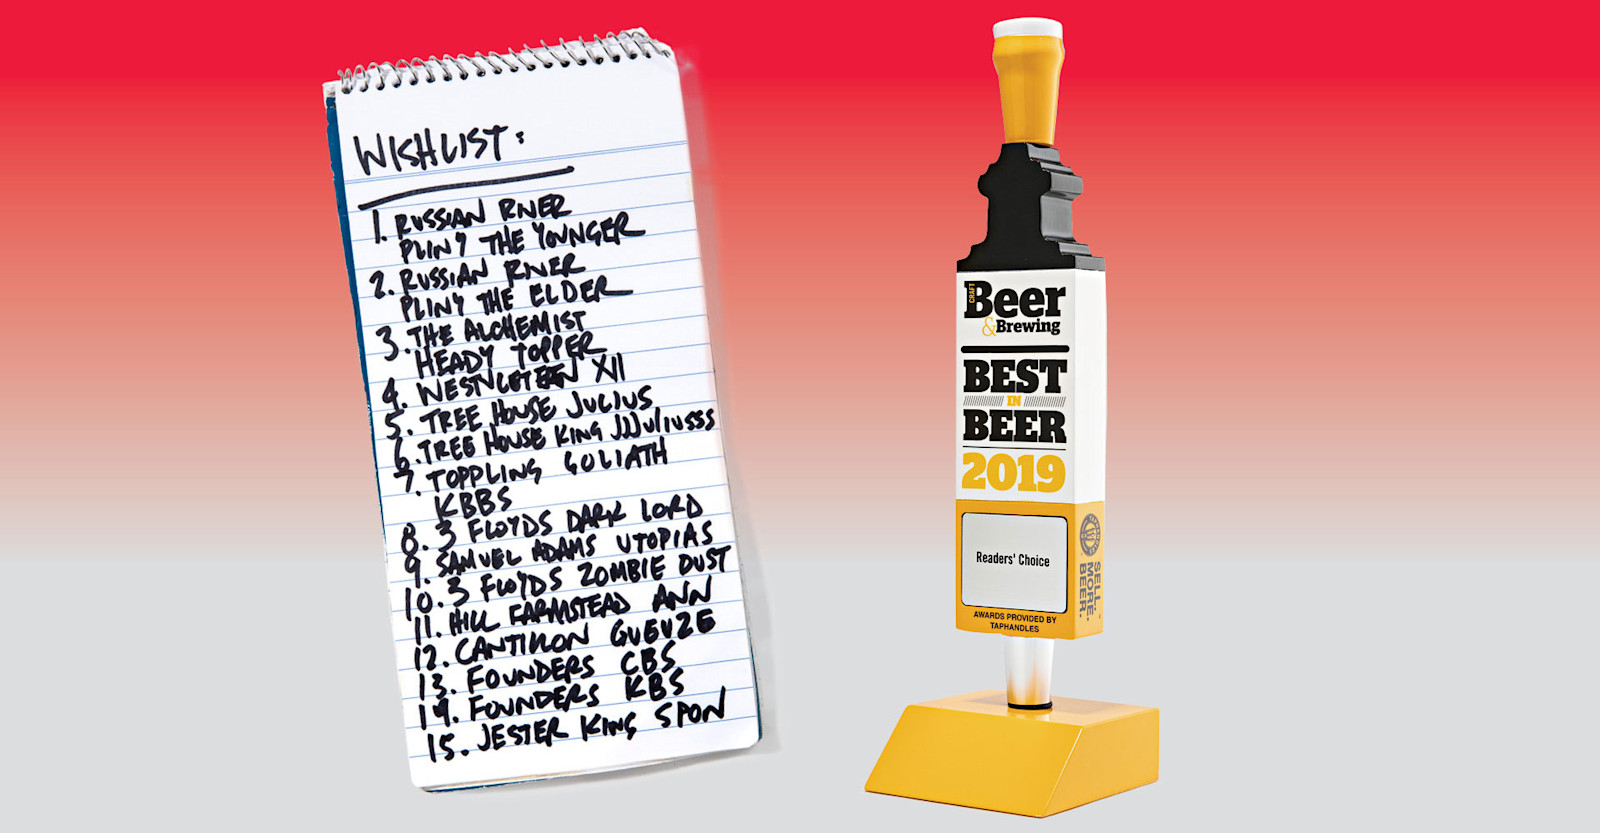 WISHLIST:
1. RUSSIAN RIVER
PLINY THE YOUNGER
2. RUSSIAN RIVER
PLINY THE ELDER
3. THE ALCHEMIST
HEADY TOPPER
4. WESTVLETEREN XII
5. TREE HOUSE JULIUS
6. TREE HOUSE KING JJJULIUSSS
7. TOPPLING GOLIATH
KBBS
8. 3 FLOYDS DARK LORD
9. SAMUEL ADAMS UTOPIAS
10. 3 FLOYDS ZOMBIE DUST
11. HILL FARMSTEAD ANN
12. CANTILLON GUEUZE
13. FOUNDERS CBS
14. FOUNDERS KBS
15. JESTER KING SPON
CRAFT
Beer
& Brewing
BEST
IN
BEER
2019
Readers' Choice
AWARDS PROVIDED BY
TAPHANDLES
SELL.
MORE.
BEER.